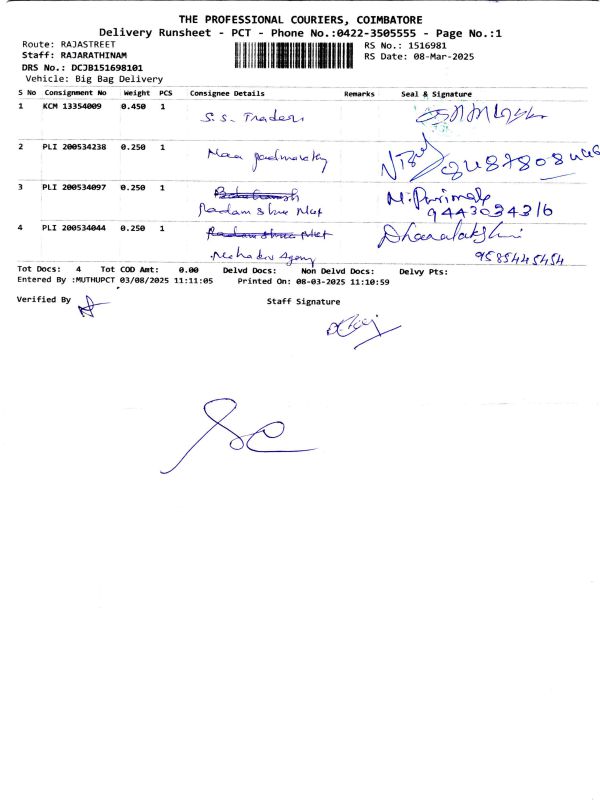 THE PROFESSIONAL COURIERS, COIMBATORE
Delivery Runsheet - PCT - Phone No.:0422-3505555 - Page No.:1
Route: RAJASTREET
RS No.: 1516981
Staff: RAJARATHINAM
RS Date: 08-Mar-2025
DRS No.: DCJB151698101
Vehicle: Big Bag Delivery
S No Consignment No Weight PCS Consignee Details Remarks Seal & Signature
1 KCM 13354009 0.450 1 S.S. Traders
2 PLI 200534238 0.250 1 Maa
3 PLI 200534097 0.250 1
9443034316
4 PLI 200534044 0.250 1 Dhanalakshmi
Mahadev Agency 9585445454
Tot Docs: 4 Tot COD Amt: 0.00 Delvd Docs: Non Delvd Docs: Delvy Pts:
Entered By :MUTHUPCT 03/08/2025 11:11:05 Printed On: 08-03-2025 11:10:59
Verified By Staff Signature